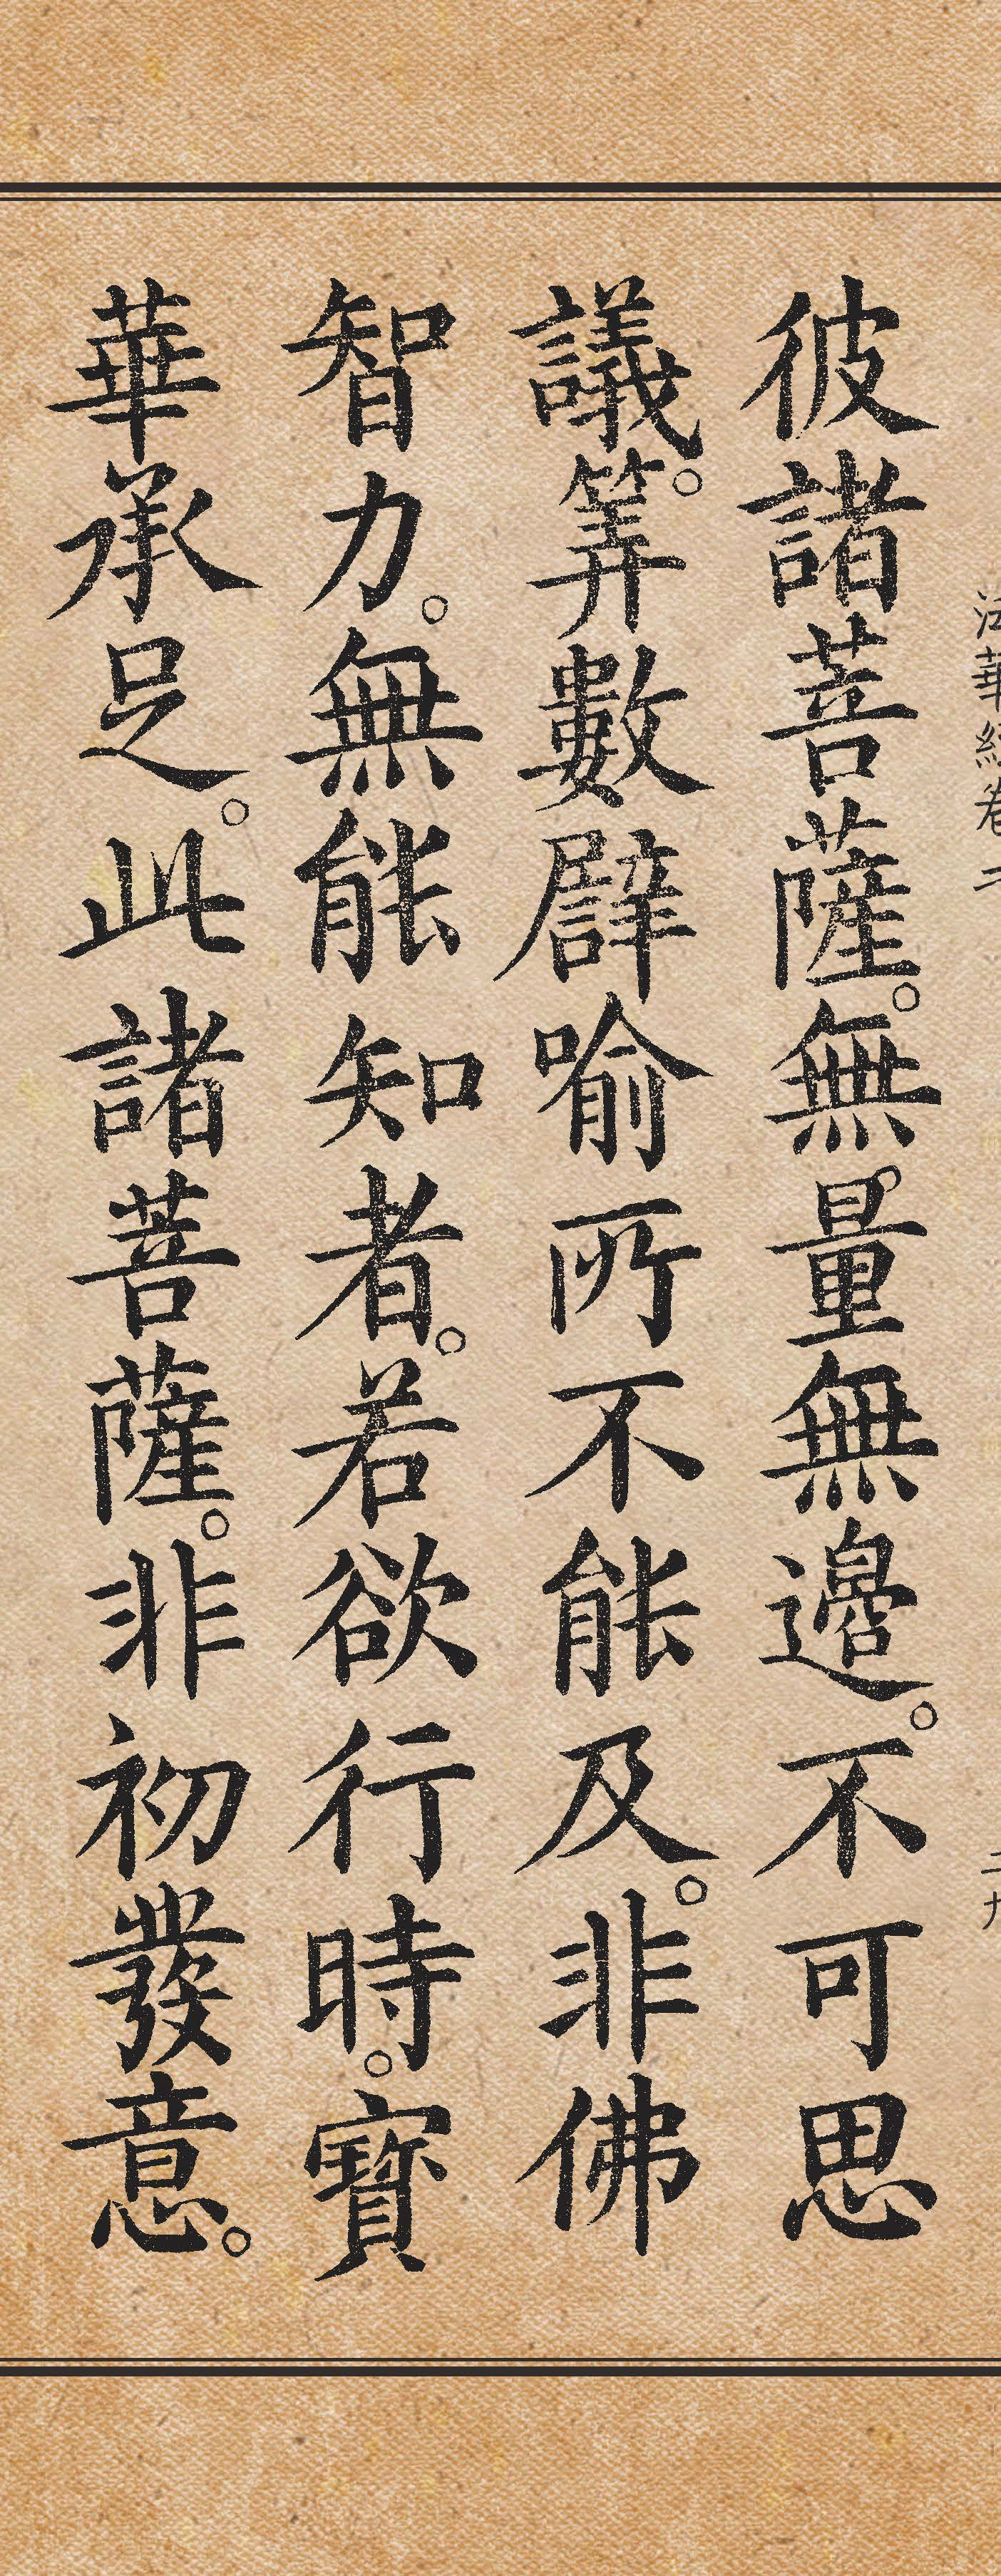 法華經卷二
二九
彼諸菩薩。無量無邊。不可思
議。筭數譬喻所不能及。非佛
智力。無能知者。若欲行時。寶
華承足。此諸菩薩。非初發意。